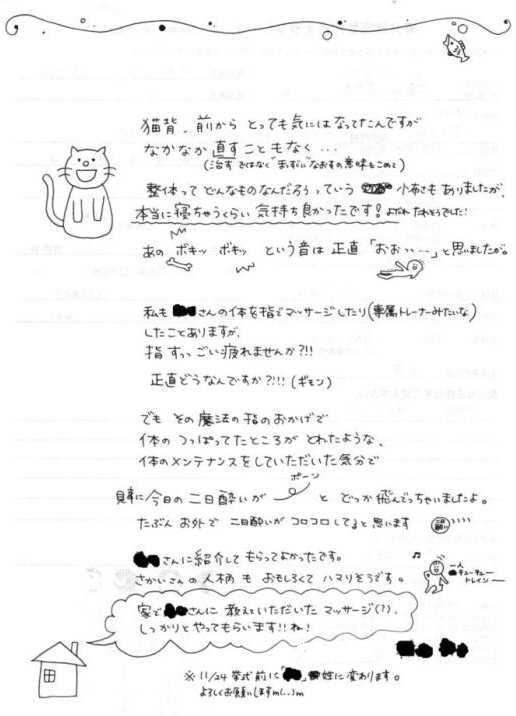 猫背、前から とっても気にはなってたんですが
なかなか 直すこともなく…
(治す ではなく"まっすぐに"なおすの意味もこめて)
整体って どんなものなんだろうっていう 小布さも ありましたが、
本当に寝ちゃうくらい 気持ち良かったです! よだれ たれそうでした!
あの ボキッ ボキッ という音は 正直 「おぉっ…」と思いましたが。
私も さんの体を指でマッサージしたり(専属トレーナーみたいな)
したことありますが、
指 すっっごい疲れませんか?!!
正直どうなんですか?!!! (ギモン)
でも その魔法の指のおかげで
体の つっぱってたところが とれたような、
体のメンテナンスをしていただいた気分で
ポーン
見事に今日の二日酔いが と どっか飛んでっちゃいましたよ。
たぶん お外で 二日酔いが コロコロ してると思います
さんに紹介して もらってよかったです。
さかいさんの人柄 も おもしろくて ハマりそうです。
一人
チューチュー
トレイン
家で さんに 教えていただいた マッサージ(?)、
しっかりと やってもらいます!!ね!
※ 11/24 挙式前に「 」姓に変わります。
よろしくお願いしますm(..)m